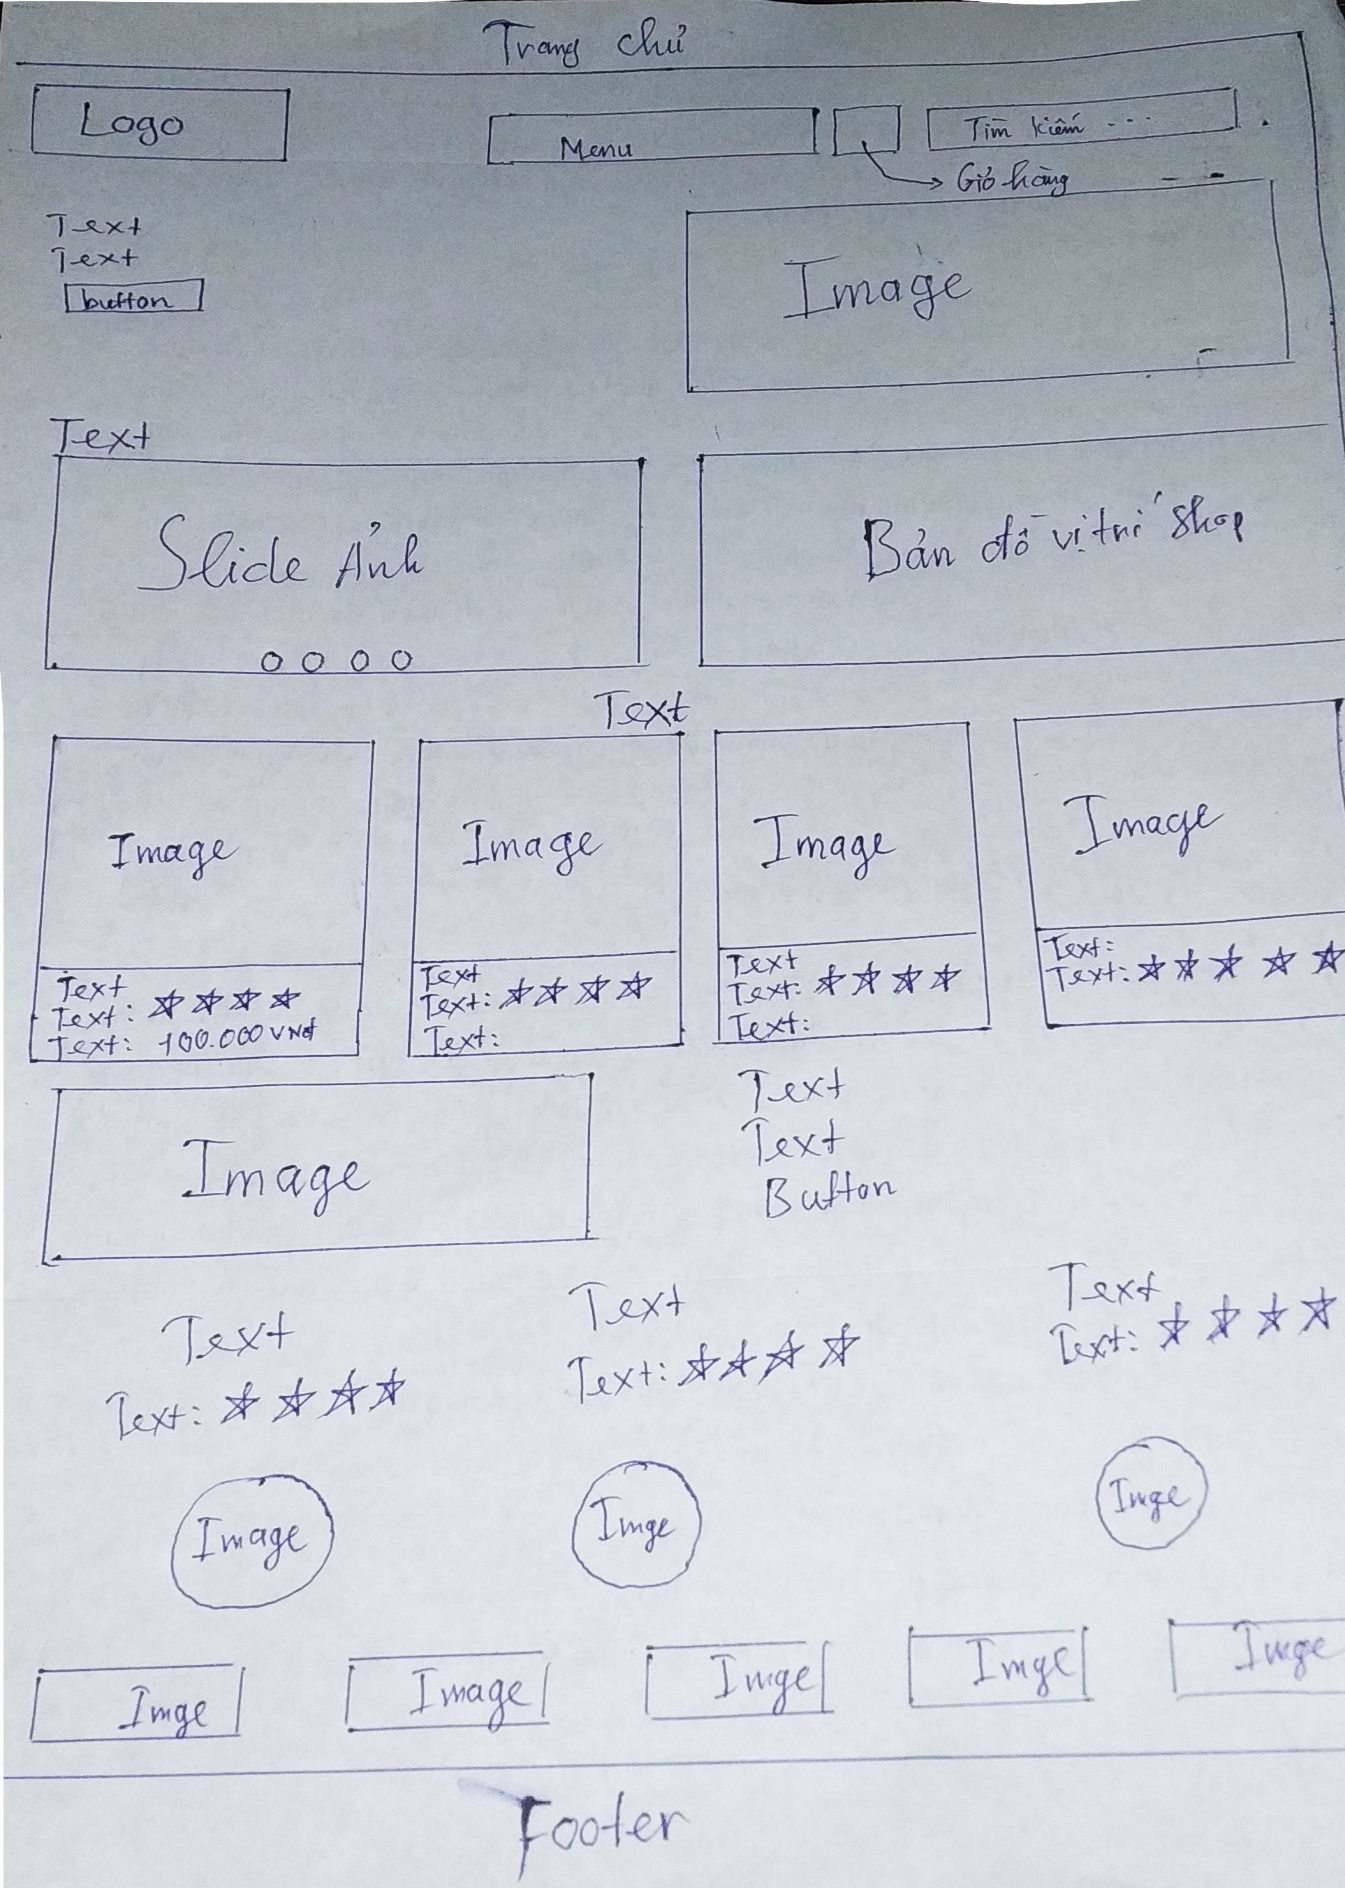 Trang chủ
Logo
Menu
Tìm kiếm ...
Giỏ hàng
Text
Text
button
Image
Text
Slide Ảnh
Bản đồ vị trí shop
Text
Image
Image
Image
Image
Text
Text: ☆ ☆ ☆ ☆
Text: 100.000 VNđ
Text
Text: ☆ ☆ ☆ ☆
Text:
Text
Text: ☆ ☆ ☆ ☆
Text:
Text:
Text: ☆ ☆ ☆ ☆ ☆
Image
Text
Text
Button
Text
Text: ☆ ☆ ☆ ☆
Text
Text: ☆ ☆ ☆ ☆
Text
Text: ☆ ☆ ☆ ☆
Image
Imge
Imge
Imge
Image
Imge
Imge
Imge
Footer